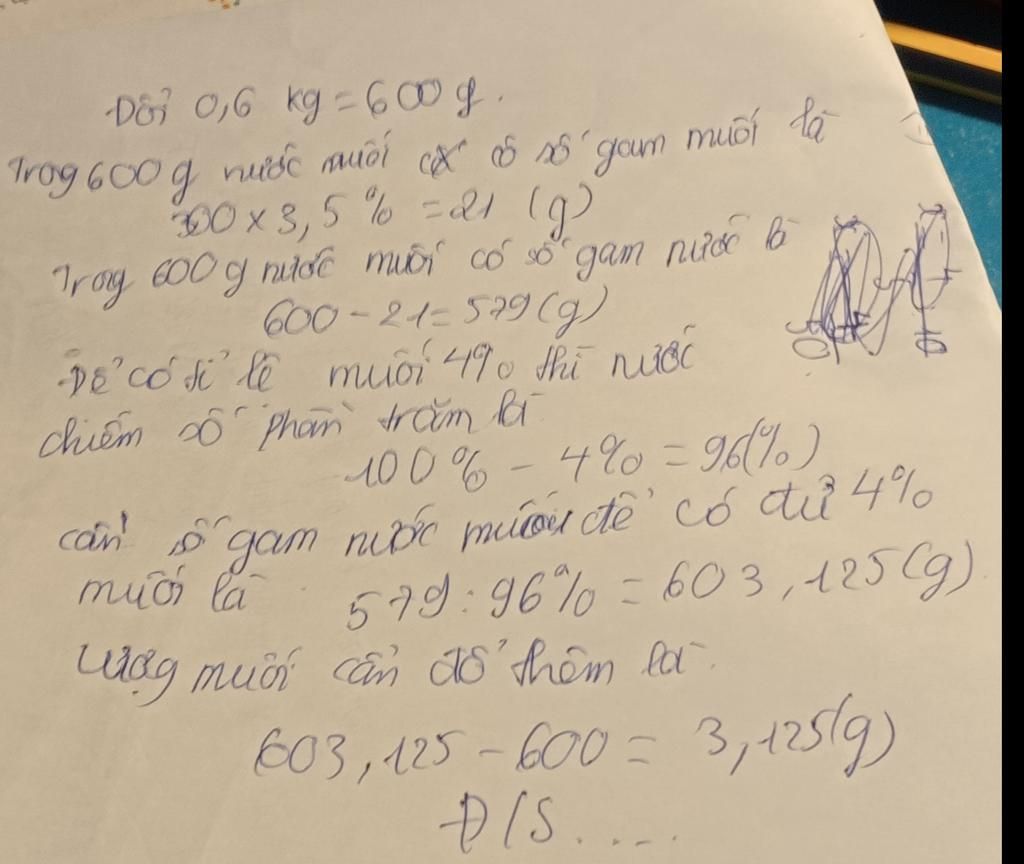 Đổi 0,6 kg = 600 g.
Trog 600 g nước muối có số gam muối là
600 x 3,5 % = 21 (g)
Trog 600 g nước muối có số gam nước là
600 - 21 = 579 (g)
Để có tỉ lệ muối 4% thì nước
chiếm số phần trăm là
100 % - 4% = 96(%)
cần số gam nước muối để có đủ 4%
muối là 579 : 96% = 603,125 (g)
Lượg muối cần đổ thêm là.
603,125 - 600 = 3,125(g)
Đ/S....